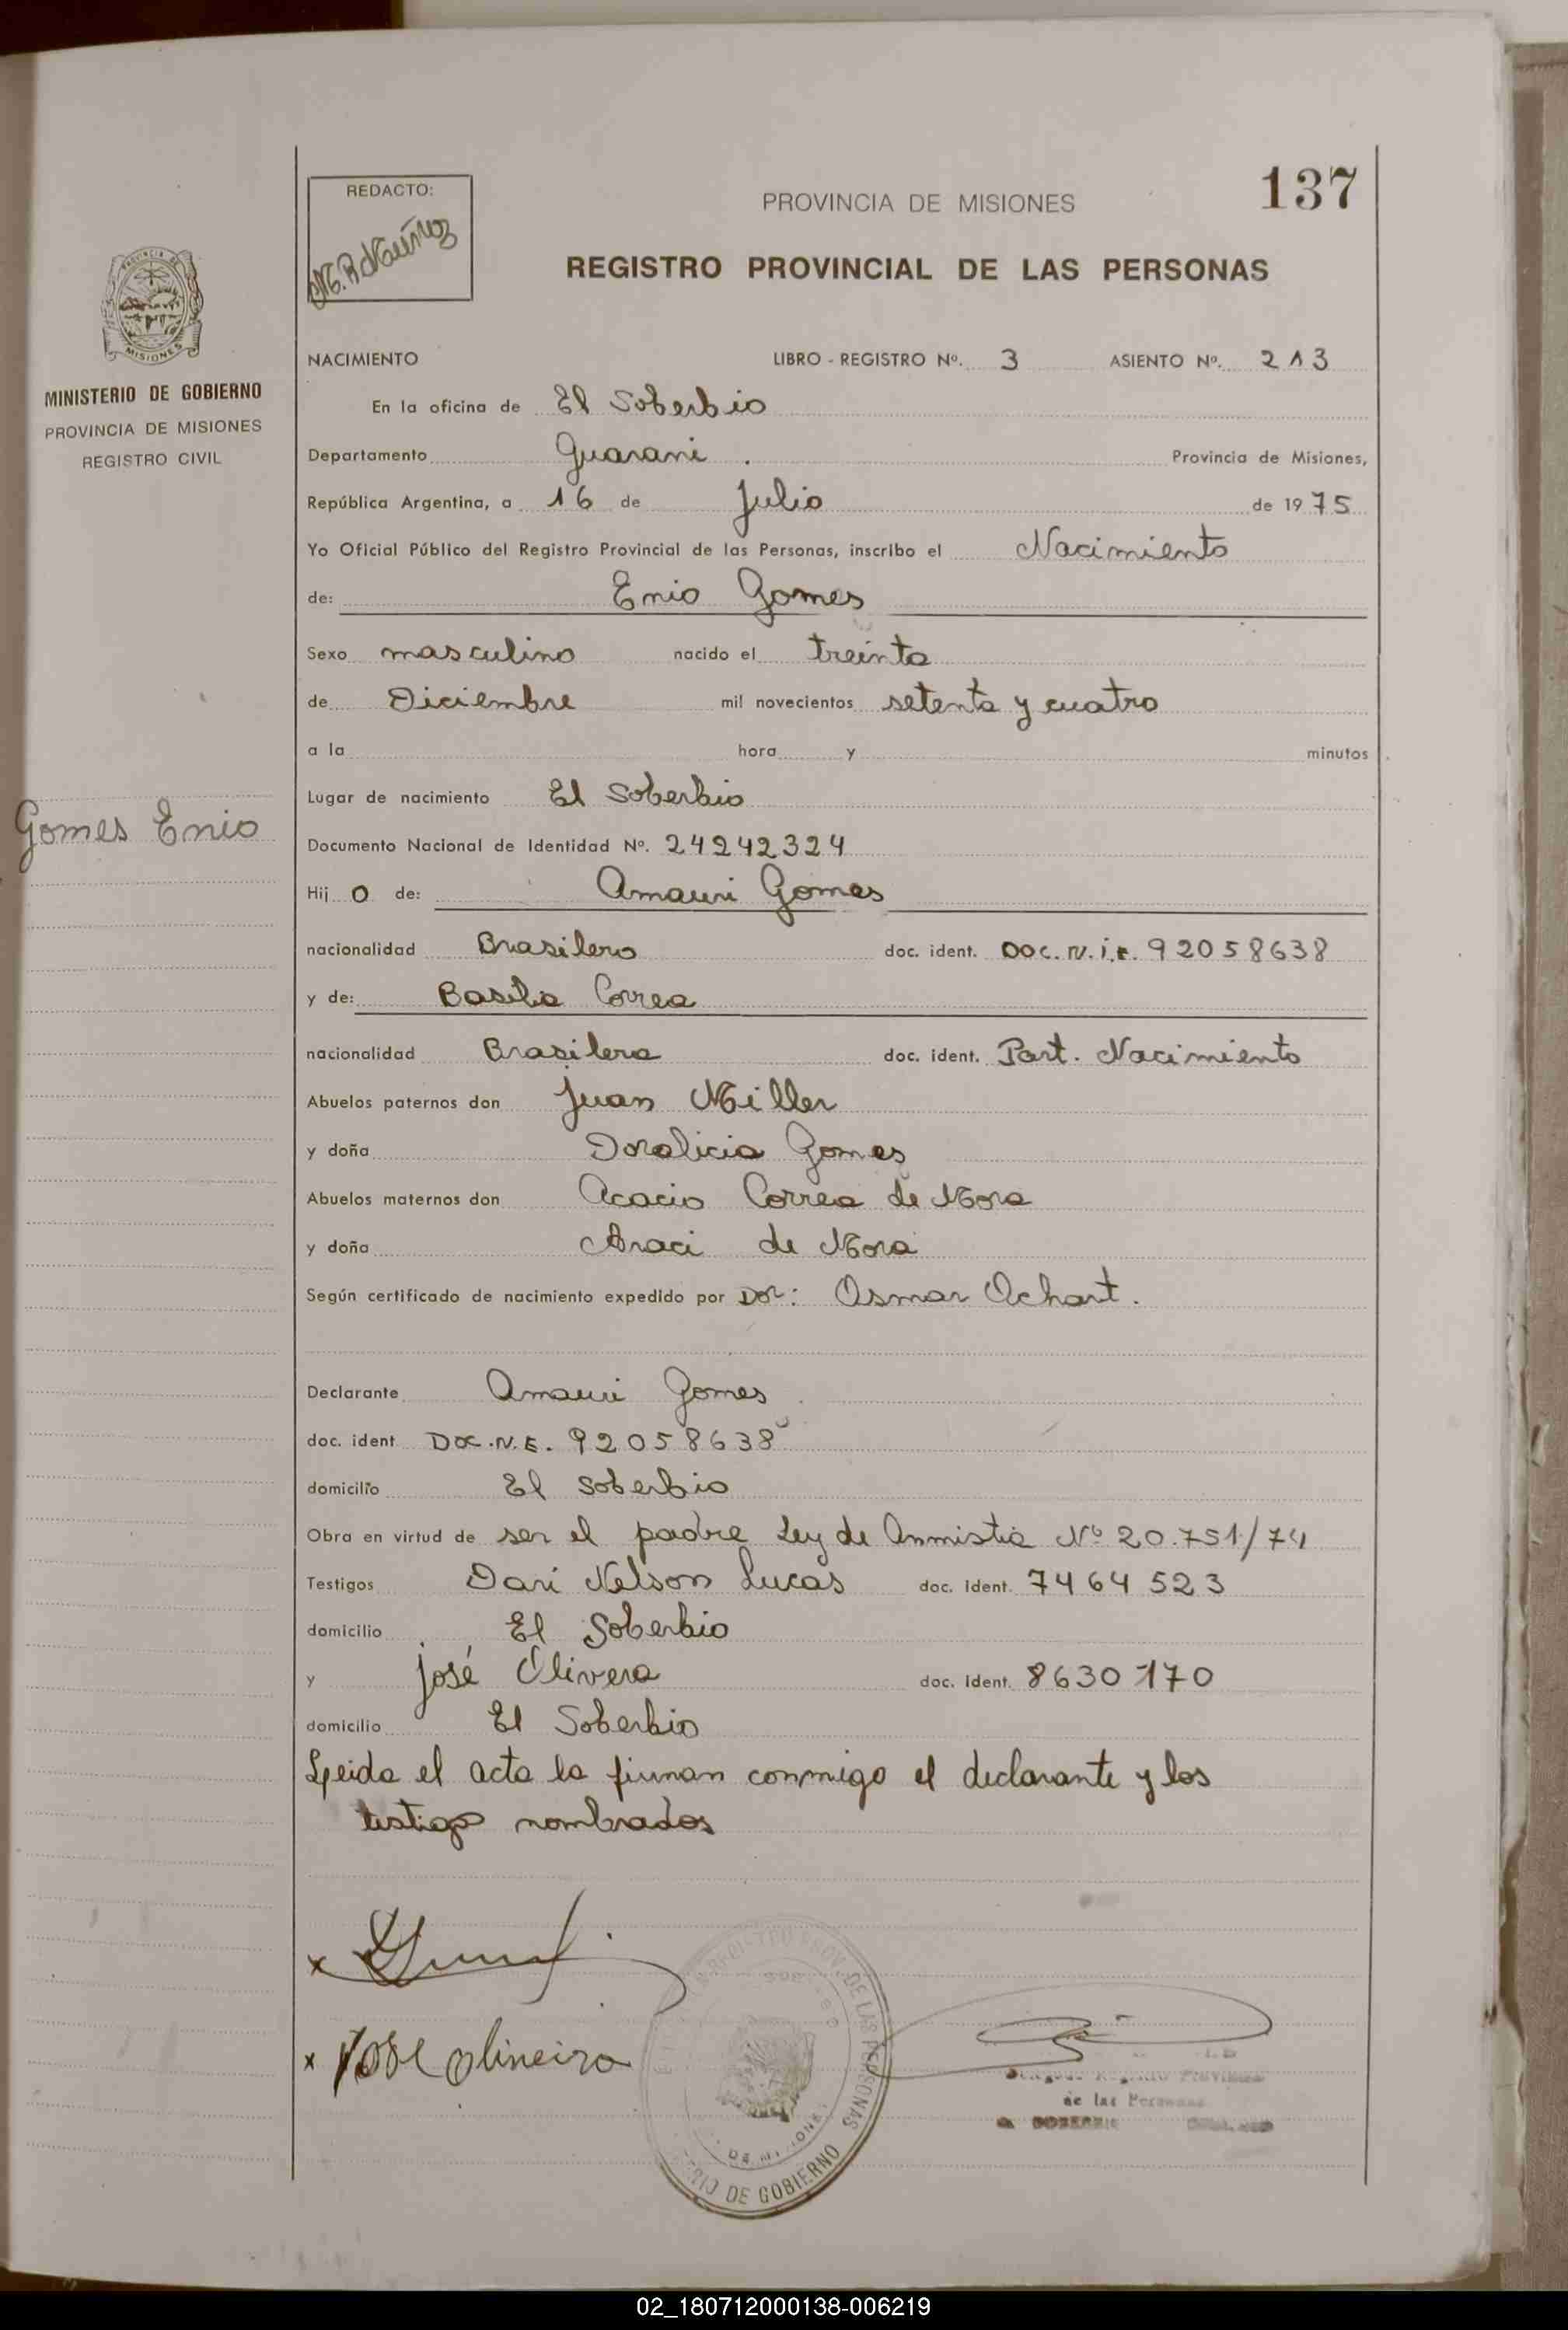 137
REDACTO:
PROVINCIA DE MISIONES
REGISTRO PROVINCIAL DE LAS PERSONAS
MISIONES
MINISTERIO DE GOBIERNO
PROVINCIA DE MISIONES
REGISTRO CIVIL
NACIMIENTO LIBRO - REGISTRO Nº. 3 ASIENTO Nº. 213
En la oficina de El Soberbio
Departamento Guarani . Provincia de Misiones,
República Argentina, a 16 de Julio de 1975
Yo Oficial Público del Registro Provincial de las Personas, inscribo el Nacimiento
de: Enio Gomes
Sexo masculino nacido el treinta
de Diciembre mil novecientos setenta y cuatro
a la hora y minutos
Lugar de nacimiento El Soberbio
Gomes Enio
Documento Nacional de Identidad Nº. 24242324
Hij o de: Amauri Gomes
nacionalidad Brasilero doc. ident. DOC. N. I. E. 92058638
y de: Basilia Correa
nacionalidad Brasilera doc. ident. Part. Nacimiento
Abuelos paternos don Juan Miller
y doña Doralicia Gomes
Abuelos maternos don Acacio Correa de Mora
y doña Araci de Mora
Según certificado de nacimiento expedido por Dor: Osmar Achart.
Declarante Amauri Gomes
doc. ident DOC. N. E. 92058638
domicilio El Soberbio
Obra en virtud de ser el padre Ley de Anmistia Nº 20.751/74
Testigos Dari Nelson Lucas doc. ident. 7464523
domicilio El Soberbio
y José Olivera doc. ident. 8630170
domicilio El Soberbio
Leida el acta la firman conmigo el declarante y los
testigos nombrados
x
x Jose olineira
DE LAS PERSONAS
DE GOBIERNO
de las Personas
02_180712000138-006219